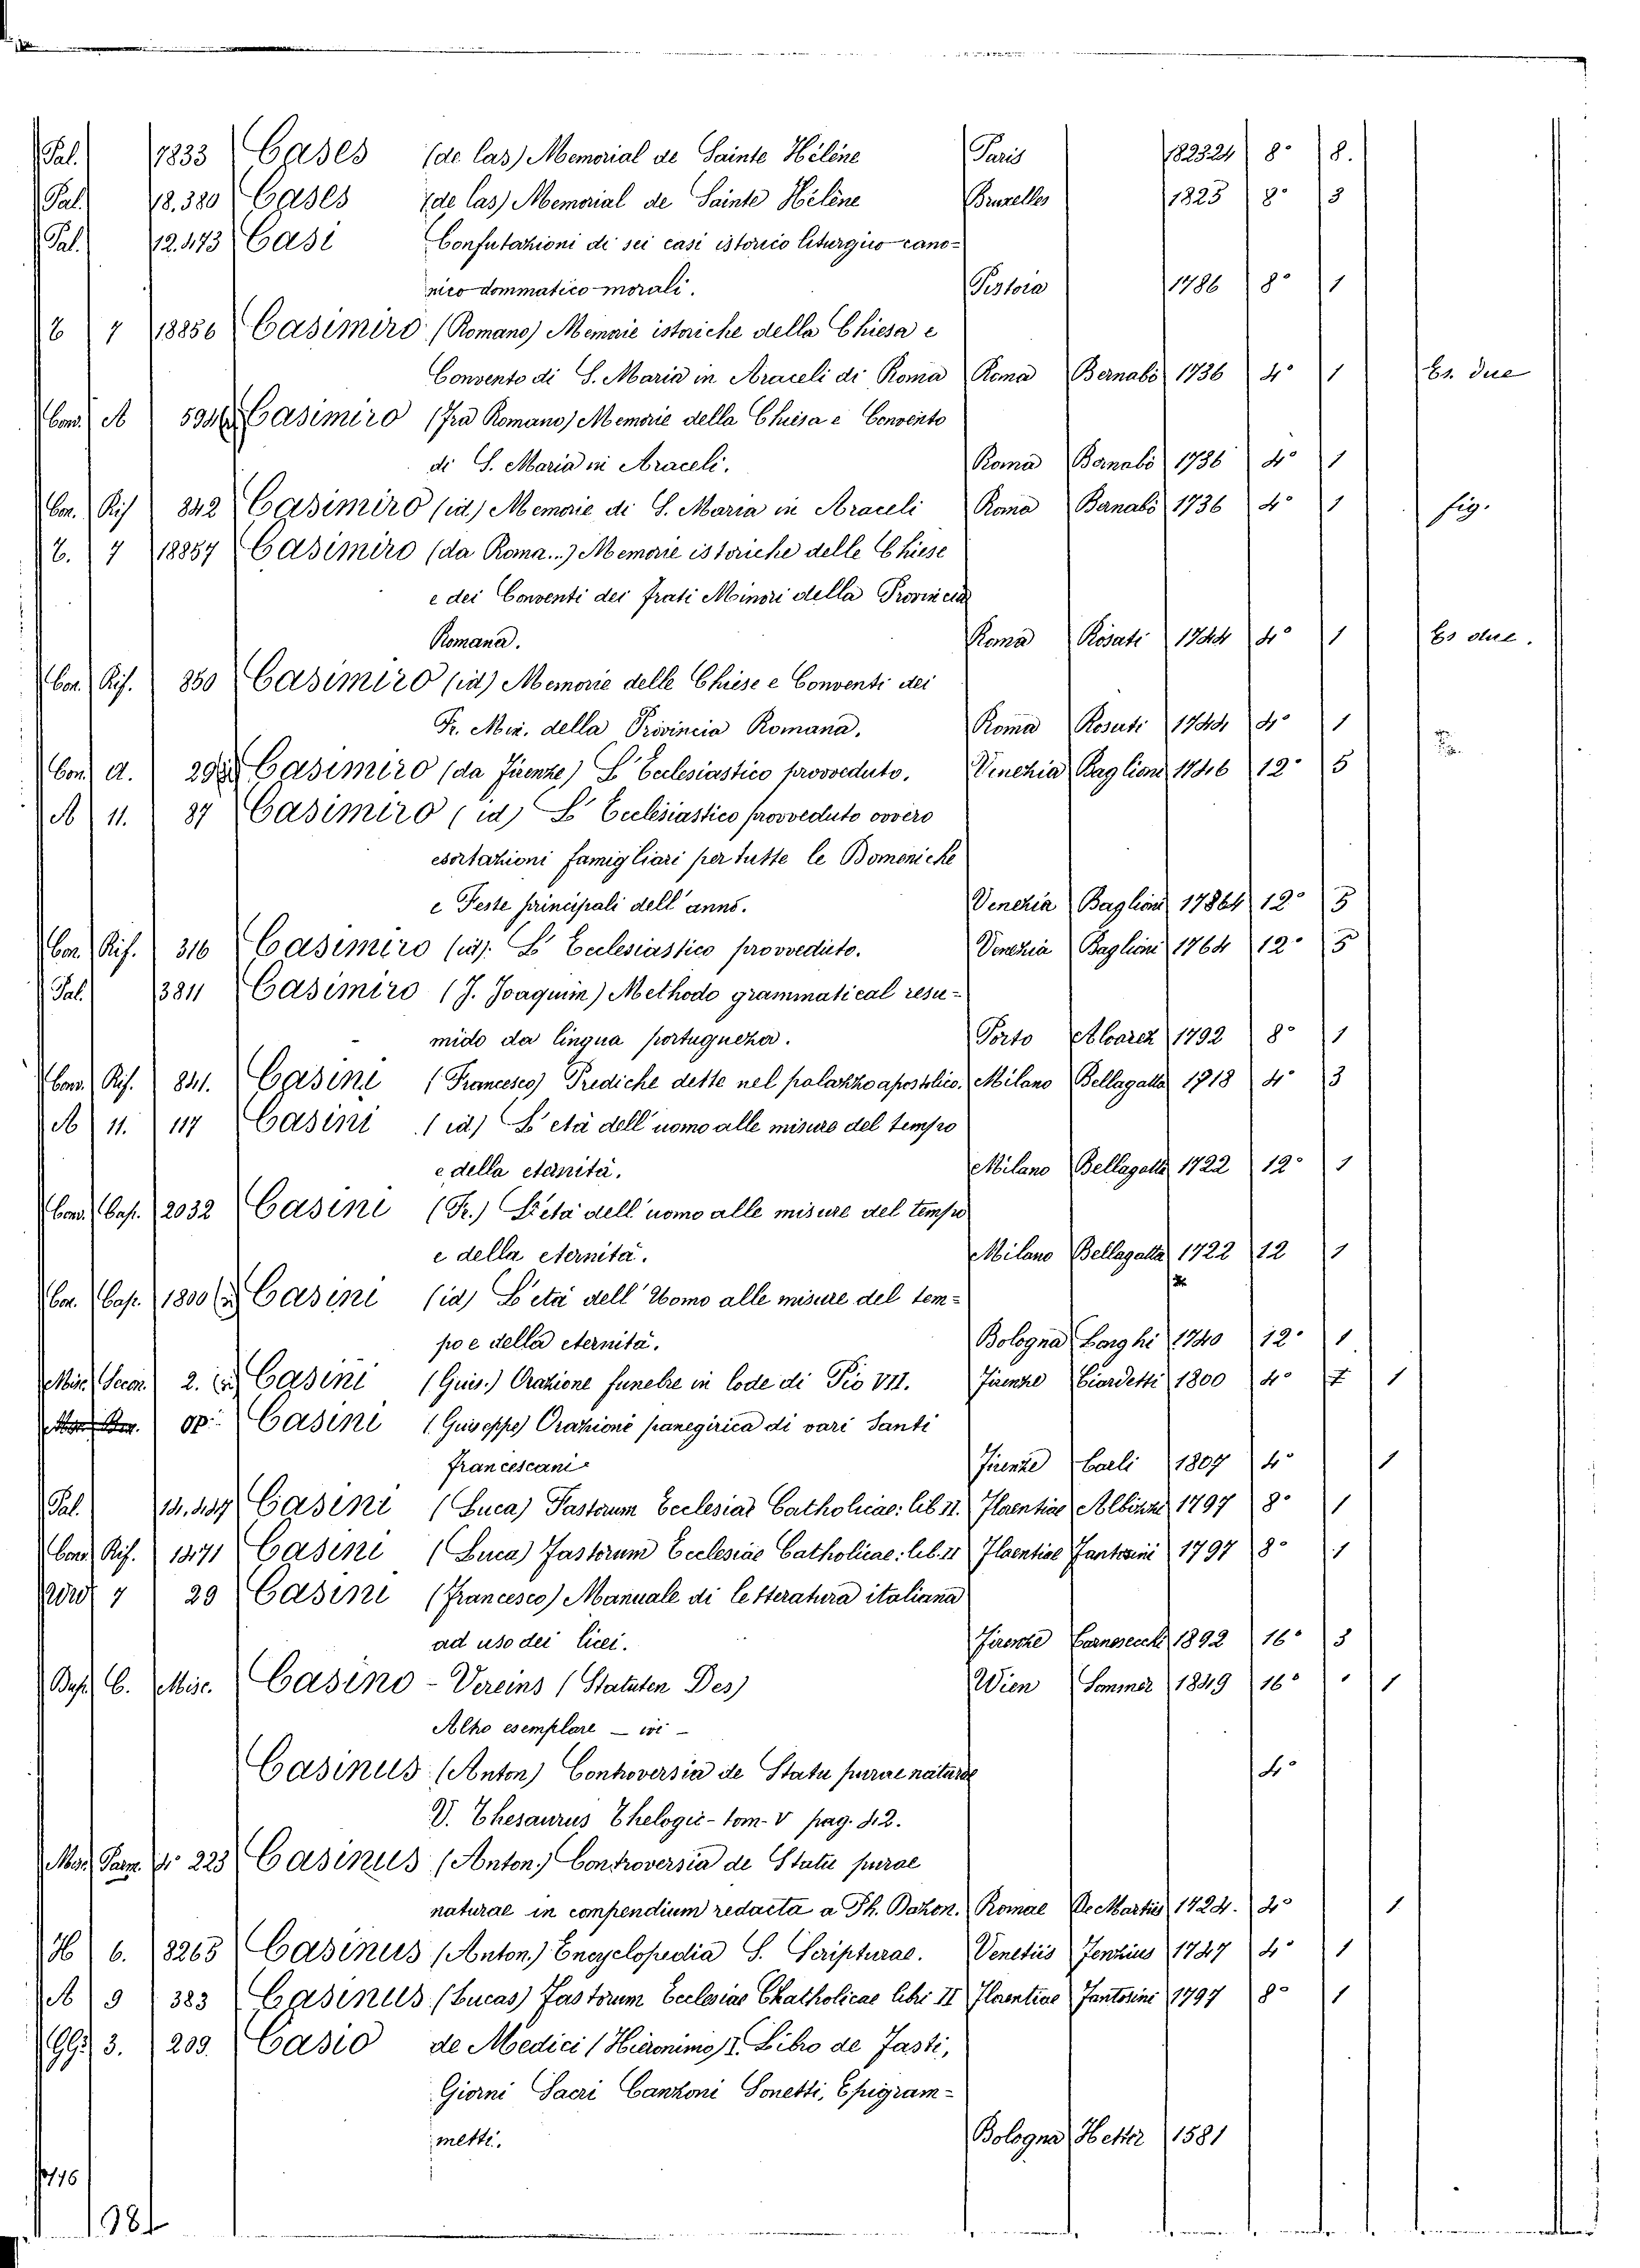 Pal. 7833 Cases (de las) Memorial de Sainte Hélène Paris 182324 8° 8.
Pal. 18.380 Cases (de las) Memorial de Sainte Hélène Bruxelles 1823 8° 3
Pal. 12.473 Casi Confutazioni di sei casi istorico liturgico-cano-
nico-dommatico-morali. Pistoia 1786 8° 1
7 18856 Casimiro (Romano) Memorie istoriche della Chiesa e
Convento di S. Maria in Araceli di Roma Roma Bernabò 1736 4° 1 Es. due
Conv. A Casimiro (Fra Romano) Memorie della Chiesa e Convento
di S. Maria in Araceli. Roma Bernabò 1736 4° 1
Con. Rif 842 Casimiro (id) Memorie di S. Maria in Araceli Roma Bernabò 1736 4° 1 fig.
7 18857 Casimiro (da Roma...) Memorie istoriche delle Chiese
e dei Conventi dei frati Minori della Provincia
Romana. Roma Rosati 1744 4° 1 Es due.
Con. Rif. 850 Casimiro (id) Memorie delle Chiese e Conventi dei
Fr. Min. della Provincia Romana. Roma Rosati 1744 4° 1
Con. A. Casimiro (da Firenze) L'Ecclesiastico provveduto. Venezia Baglioni 1746 12° 5
A 11. 87 Casimiro (id) L'Ecclesiastico provveduto ovvero
esortazioni famigliari per tutte le Domeniche
e Feste principali dell'anno. Venezia Baglioni 12° 5
Con. Rif. 316 Casimiro (id). L'Ecclesiastico provveduto. Venezia Baglioni 1764 12° 5
Pal. 3811 Casimiro (J. Joaquim) Methodo grammatical resu-
mido da lingua portugueza. Porto Alvarez 1792 8° 1
Conv. Rif. 841. Casini (Francesco) Prediche dette nel palazzo apostolico. Milano Bellagatta 1718 4° 3
A 11. 117 Casini (id) L'età dell'uomo alle misure del tempo
e della eternità. Milano Bellagatta 1722 12° 1
Conv. Cap. 2032 Casini (Fr.) L'età dell'uomo alle misure del tempo
e della eternità. Milano Bellagatta 1722 12 1
Con. Cap. 1800 Casini (id) L'età dell'Uomo alle misure del tem-
po e della eternità. Bologna Longhi 1740 12° 1
Misc. Secon. 2. Casini (Guis.) Orazione funebre in lode di Pio VII. Firenze Ciardetti 1800 4° 1
op. Casini (Guiseppe) Orazione panegirica di vari Santi
francescani Firenze Carli 1807 4° 1
Pal. Casini (Luca) Fastorum Ecclesiae Catholicae: lib II. Florentiae Albizzi 1797 8° 1
Conv. Rif. 1471 Casini (Luca) Fastorum Ecclesiae Catholicae: lib. II Florentiae Fantosini 1797 8° 1
7 29 Casini (Francesco) Manuale di letteratura italiana
ad uso dei licei. Firenze Carnesecchi 1892 16° 3
C. Misc. Casino-Vereins (Statuten Des) Wien Sommer 1849 16° 1
Altro esemplare — ivi —
Casinus (Anton) Controversia de Statu purae naturae 4°
V. Thesaurus Thelogic-tom-V pag. 42.
Misc. Parm. 4° 223 Casinus (Anton.) Controversia de Statu purae
naturae in compendium redacta a Ph. Bazon. Romae De Martiis 1724. 4° 1
H 6. 8265 Casinus (Anton.) Encyclopedia S. Scripturae. Venetiis 1747 4° 1
A 9 383 Casinus (Lucas) Fastorum Ecclesiae Chatholicae libri II Florentiae Fantosini 1797 8° 1
GG. 3. 209. Casio de Medici (Hieronimo) I. Libro de Fasti,
Giorni Sacri Canzoni Sonetti, Epigram-
metti. Bologna 1581